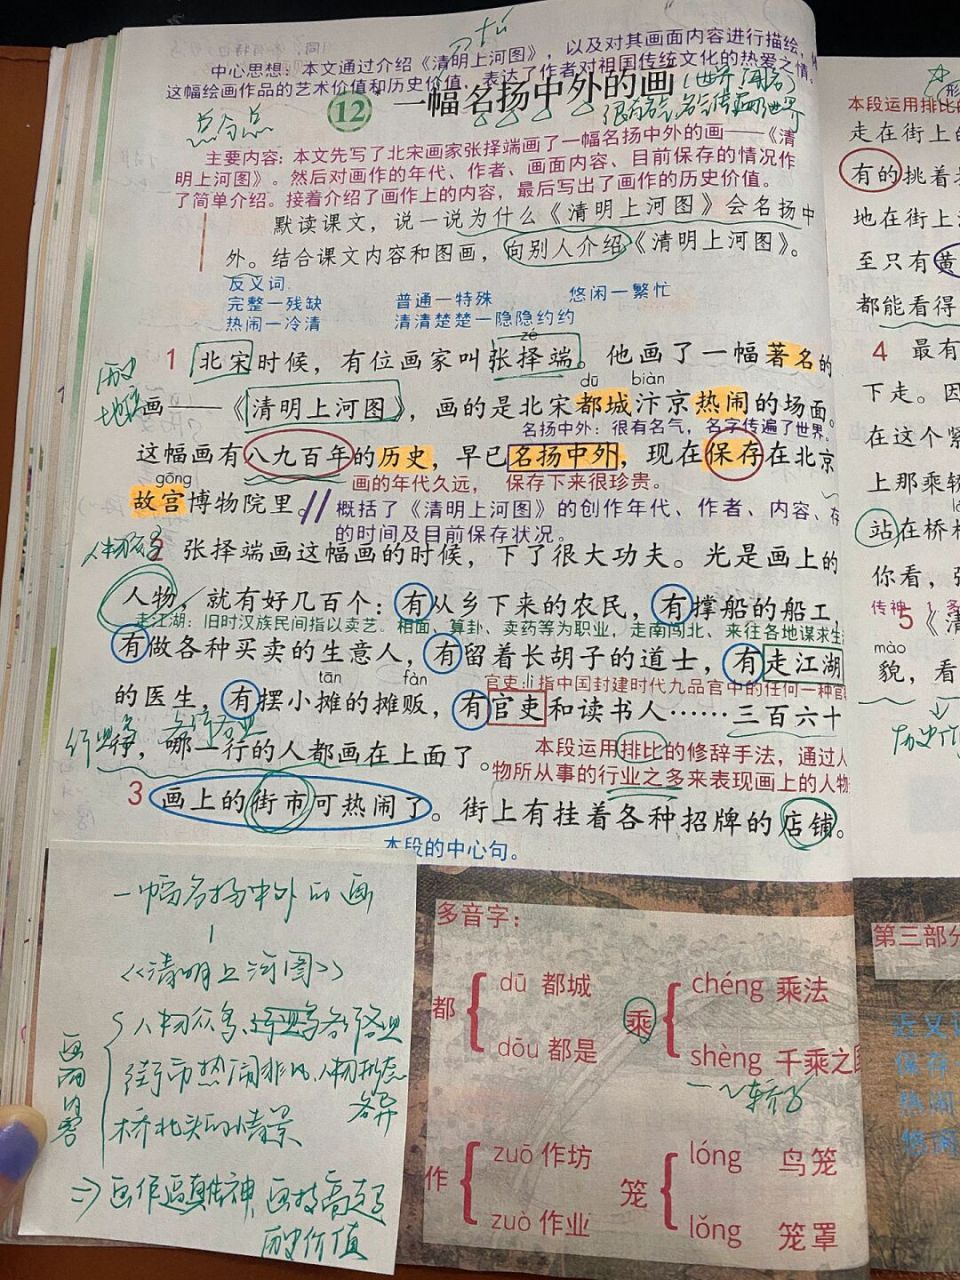 中心思想：本文通过介绍《清明上河图》，以及对其画面内容进行描绘，
这幅绘画作品的艺术价值和历史价值，表达了作者对祖国传统文化的热爱之情。
12 一幅名扬中外的画
(世界闻名)
很有名气，名字传遍世界
总分总
主要内容：本文先写了北宋画家张择端画了一幅名扬中外的画——《清
明上河图》。然后对画作的年代、作者、画面内容、目前保存的情况作
了简单介绍。接着介绍了画作上的内容，最后写出了画作的历史价值。
默读课文，说一说为什么《清明上河图》会名扬中
外。结合课文内容和图画，向别人介绍《清明上河图》。
反义词
完整—残缺 普通—特殊 悠闲—繁忙
热闹—冷清 清清楚楚—隐隐约约
zé
1 北宋时候，有位画家叫张择端。他画了一幅著名的
历史
地位
dū biàn
画——《清明上河图》，画的是北宋都城汴京热闹的场面。
名扬中外：很有名气，名字传遍了世界。
这幅画有八九百年的历史，早已名扬中外，现在保存在北京
画的年代久远， 保存下来很珍贵。
gōng
故宫博物院里。
概括了《清明上河图》的创作年代、作者、内容、存
的时间及目前保存状况。
人物众多
2 张择端画这幅画的时候，下了很大功夫。光是画上的
人物，就有好几百个：有从乡下来的农民，有撑船的船工，
走江湖：旧时汉族民间指以卖艺、相面、算卦、卖药等为职业，走南闯北、来往各地谋求生
有做各种买卖的生意人，有留着长胡子的道士，有走江湖
tān fàn
官吏:lì 指中国封建时代九品官中的任何一种官
的医生，有摆小摊的摊贩，有官吏和读书人……三百六十
各行各业
行，哪一行的人都画在上面了。
本段运用排比的修辞手法，通过人
物所从事的行业之多来表现画上的人物
3 画上的街市可热闹了。街上有挂着各种招牌的店铺。
本段的中心句。
一幅名扬中外的画
《清明上河图》
画面内容
人物众多、各行各业
街市热闹非凡、人物形态
各异
桥北头的情景
⇒画作逼真传神，画技高超
历史价值
多音字：
都 dū 都城
dōu 都是
乘 chéng 乘法
shèng 千乘之国
作 zuō 作坊
zuò 作业
笼 lóng 鸟笼
lǒng 笼罩
本段运用排比的
走在街上的
有的挑着担
地在街上
至只有黄
都能看得
4 最有
下走。因
在这个紧
上那乘轿
站在桥栏
你看，张
传神
5 《清
mào
貌，看
历史价值
第三部分
近义词
保存
热闹
悠闲